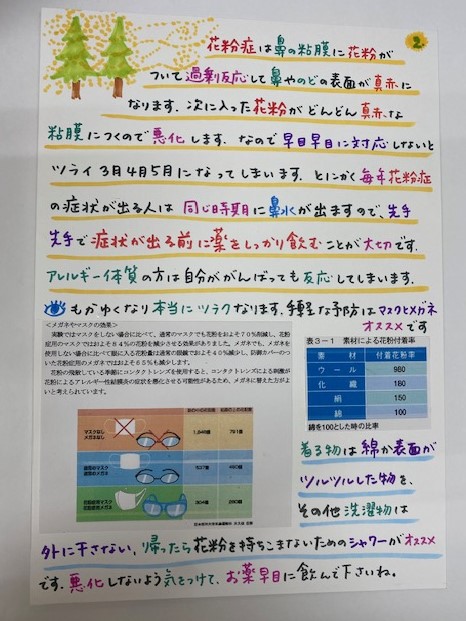 2.
花粉症は鼻の粘膜に花粉が
ついて過剰反応して鼻やのどの表面が真赤に
なります。次に入った花粉がどんどん真赤な
粘膜につくので悪化します。なので早目早目に対応しないと
ツライ3月4月5月になってしまいます。とにかく毎年花粉症
の症状が出る人は同じ時期に鼻水が出ますので、先手
先手で症状が出る前に薬をしっかり飲むことが大切です。
アレルギー体質の方は自分ががんばっても反応してしまいます。
もかゆくなり本当にツラクなります。手軽な予防はマスクとメガネ
オススメです
<メガネやマスクの効果>
実験ではマスクをしない場合に比べて、通常のマスクでも花粉をおよそ70%削減し、花粉
症用のマスクではおよそ84%の花粉を減少させる効果がありました。メガネでも、メガネを
使用しない場合に比べて眼に入る花粉量は通常の眼鏡でおよそ40%減少し、防御カバーのつい
た花粉症用のメガネではおよそ65%も減少します。
花粉の飛散している季節にコンタクトレンズを使用すると、コンタクトレンズによる刺激が
花粉によるアレルギー性結膜炎の症状を悪化させる可能性があるため、メガネに替えた方がよ
いと考えられています。
表3-1 素材による花粉付着率
素材 付着花粉率
ウール 980
化繊 180
絹 150
綿 100
綿を100とした時の比率
マスクなし
メガネなし
1,848個
791個
通常のマスク
通常のメガネ
537個
460個
花粉症用マスク
花粉症用メガネ
304個
280個
着る物は綿か表面が
ツルツルした物を、
その他洗濯物は
外に干さない、帰ったら花粉を持ちこまないためのシャワーがオススメ
です。悪化しないよう気をつけて、お薬早目に飲んで下さいね。